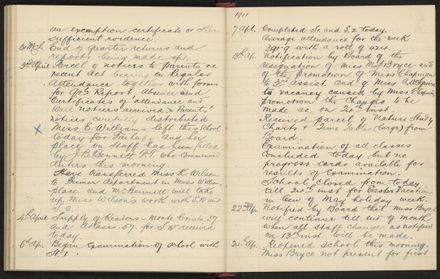 an exemption certificate or
sufficient evidence.
End of quarter returns and
reports being made up.
3rd April Parcel of notices to parents re
recent Act on Regular
Attendance together with forms
for Qrs Report, Absence and
Certificates of attendance and
Wall notices received. Parents'
notices carefully distributed
Miss C. Williams left the school
today for and her
place on staff has been filled
by J. Bennett P.T. who commenced
duties this morning
Have transferred Miss A. Wilson
to Primer department in Miss William
place and Mr Bennett will take
up Miss Wilson's work with S.
4th April Supply of Readers
and for received
today.
6th Ap. Began Examination of school with
St. 1.
1911
7 Apl. Completed St. and S.2 today.
Average attendance for the week
with a roll of
Notification by Board of the
resignation of Miss Bryce and
of the promotion of Miss Chapman
to 3rd assist. and of Miss
to vacancy caused by Miss Chapman
promotion the changes to be
made on
Received parcel of Nature Study
Charts & Time Tables (large) from
Board.
Examination of all classes
concluded today but no
progress cards available for
results of Examination.
School closed from today
till
in lieu of May holiday week.
22nd Ap. Notified by Board that Miss Bryce
will continue till end of month
when all staff changes as notified
on inst. will be made.
Reopened school this morning.
Miss Bryce not present for first